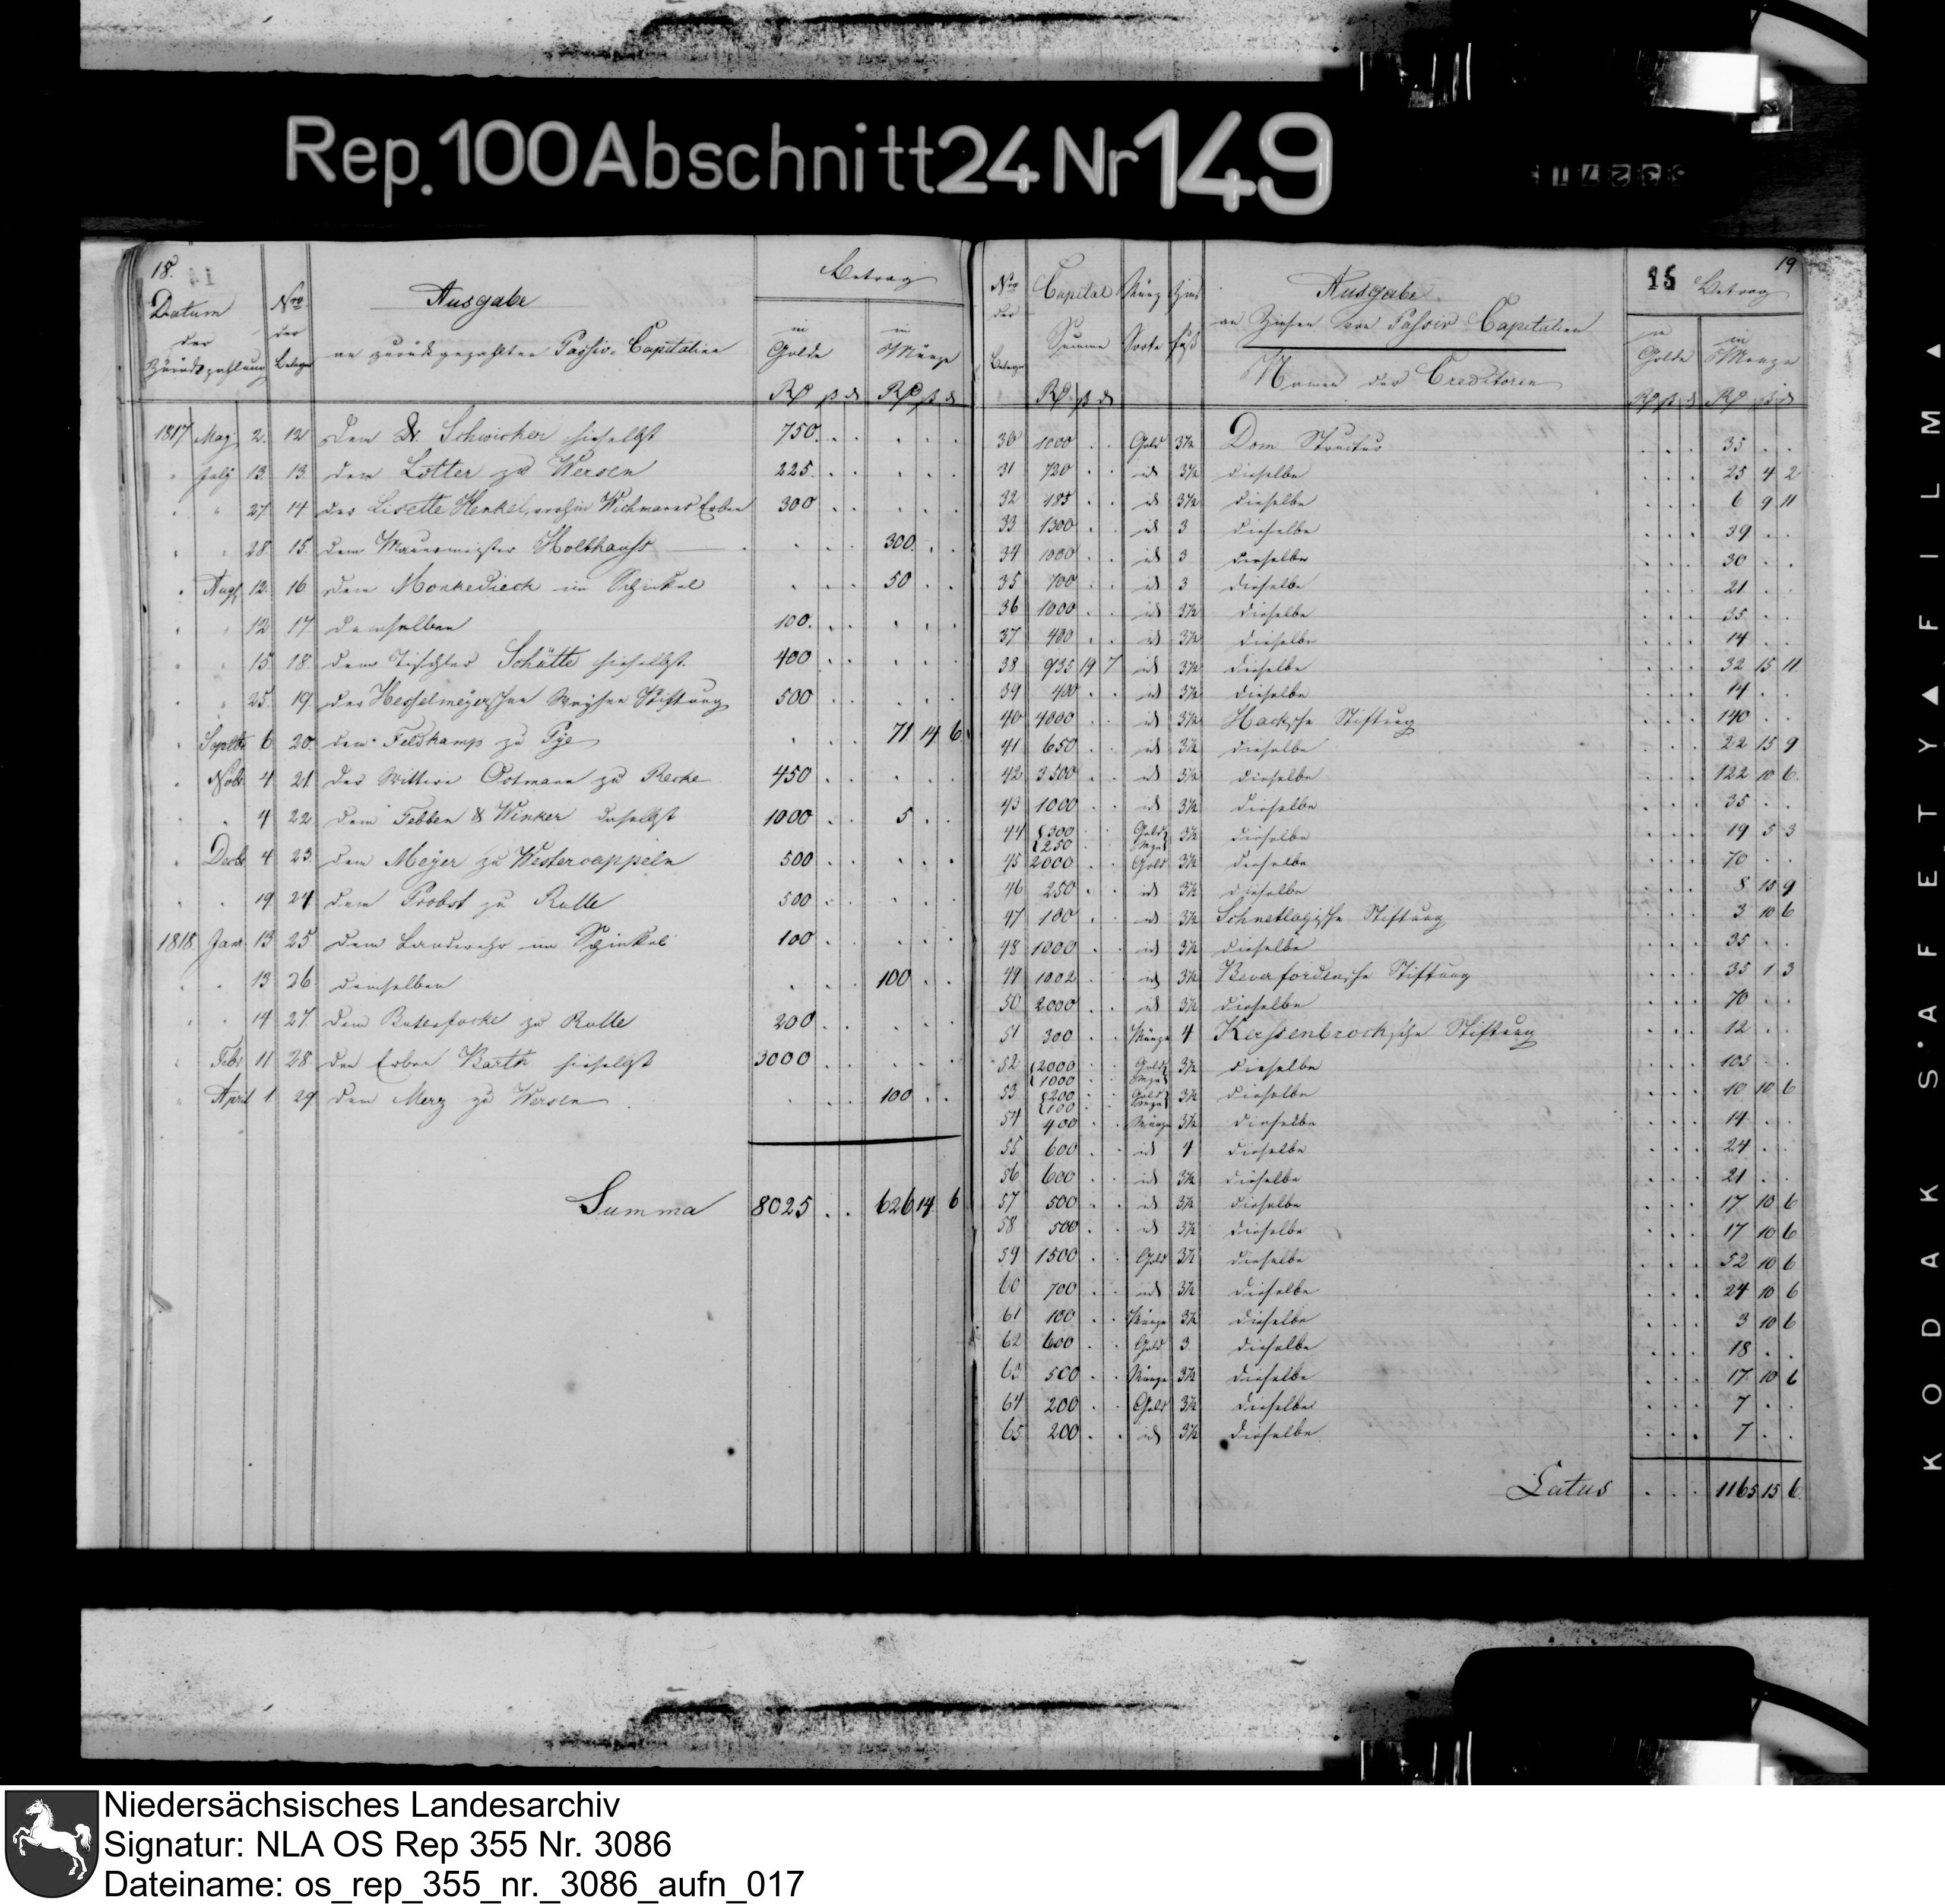 Rep. 100 Abschnitt 24 Nr 149
18.
Datum der Zurückzahlung
Nro der Belege
Ausgabe
an zurückgezahlten Passiv-Capitalien
Betrag
in Golde
in Münze
1817 May 2. 12 Dem Dr. Schwicker hieselbst 750. . .
" July 13. 13. dem Lotter zu Wersen 225. . .
" " 27. 14 der Lisette Henkel, vorhin Wichmanns Erben 300 . .
" " 28. 15. dem Mauermeister Holthauss 300. . .
" Augt 12. 16 dem Monkedieck im Schinkel 50 . .
" " 12 17 demselben 100. . .
" " 15. 18. dem Tischler Schütte hieselbst. 400 . .
" " 25. 19. der Hesselmeyerschen Waysen Stiftung 500 . .
" Septbr 6 20. dem Feldkamp zu Pye 71. 14 6.
" Novbr 4 21 der Wittwe Ostmann zu Recke 450 . .
" " 4 22 dem Tebben & Winker daselbst 1000 . . 5 . .
" Decbr 4 23. dem Meyer zu Westercappeln 500 . .
" " 19 24 dem Probst zu Rulle 500 . .
1818 Janr 13 25. dem Landwehr im Schinkel 100 . .
" " 13 26 demselben 100 . .
" " 14 27. dem zu Rulle 200 . .
" Febr 11 28. den Erben Barth hieselbst 3000 . .
" April 1 29 dem Merz zu Wersen 100 . .
Summa 8025 . . 626 14 6
15
19
Nro der Belege
Capital Summe
Münz Sorte
Zins fuß
Ausgabe
an Zinsen von Passiv Capitalien
Namen der Creditoren
Betrag
in Golde
in Münze
30 1000 . . Gold 3½ Dom Structur 35 . .
31 720 . . id 3½ dieselbe 25 4 2
32 185 . . id 3½ dieselbe 6 9 11
33 1300 . . id 3 dieselbe 39 . .
34 1000 . . id 3 dieselbe 30 . .
35 700 . . id 3 dieselbe 21 . .
36 1000 . . id 3½ dieselbe 35 . .
37 400 . . id 3½ dieselbe 14 . .
38 935 19 7 id 3½ dieselbe 32 15 11
39 400 . . id 3½ dieselbe 14 . .
40 4000 . . id 3½ Hacksche Stiftung 140 . .
41 650 . . id 3½ dieselbe 22 15 9
42 3500 . . id 3½ dieselbe 122 10 6.
43 1000 . . id 3½ dieselbe 35 . .
44 { 300 Gold } 3½ dieselbe 19 5 3
{ 250 Mze }
45 2000 . . Gold 3½ dieselbe 70 . .
46 250 . . id 3½ dieselbe 8 15 9
47 100 . . id 3½ Schnetlagische Stiftung 3 10 6
48 1000 . . id 3½ dieselbe 35 . .
49 1002 . . id 3½ Beverfördensche Stiftung 35 1 3
50 2000 . . id 3½ dieselbe 70 . .
51 300 . . Münze 4 Kerssenbrocksche Stiftung 12 . .
52 { 2000 Gold } 3½ dieselbe 105 . .
{ 1000 Mze }
53 { 200 Gold } 3½ dieselbe 10 10 6
{ 100 Mze }
54 400 . . Münze 3½ dieselbe 14 . .
55 600 . . id 4 dieselbe 24 . .
56 600 . . id 3½ dieselbe 21 . .
57 500 . . id 3½ dieselbe 17 10 6
58 500 . . id 3½ dieselbe 17 10 6
59 1500 . . Gold 3½ dieselbe 52 10 6
60 700 . . id 3½ dieselbe 24 10 6
61 100 . . Münze 3½ dieselbe 3 10 6
62 600 . . Gold 3 dieselbe 18 . .
63 500 . . Münze 3½ dieselbe 17 10 6
64 200 . . Gold 3½ dieselbe 7 . .
65 200 . . id 3½ dieselbe 7 . .
Latus 1165 15 6
KODAK S·AFETY▲FILM▲
Niedersächsisches Landesarchiv
Signatur: NLA OS Rep 355 Nr. 3086
Dateiname: os_rep_355_nr._3086_aufn_017